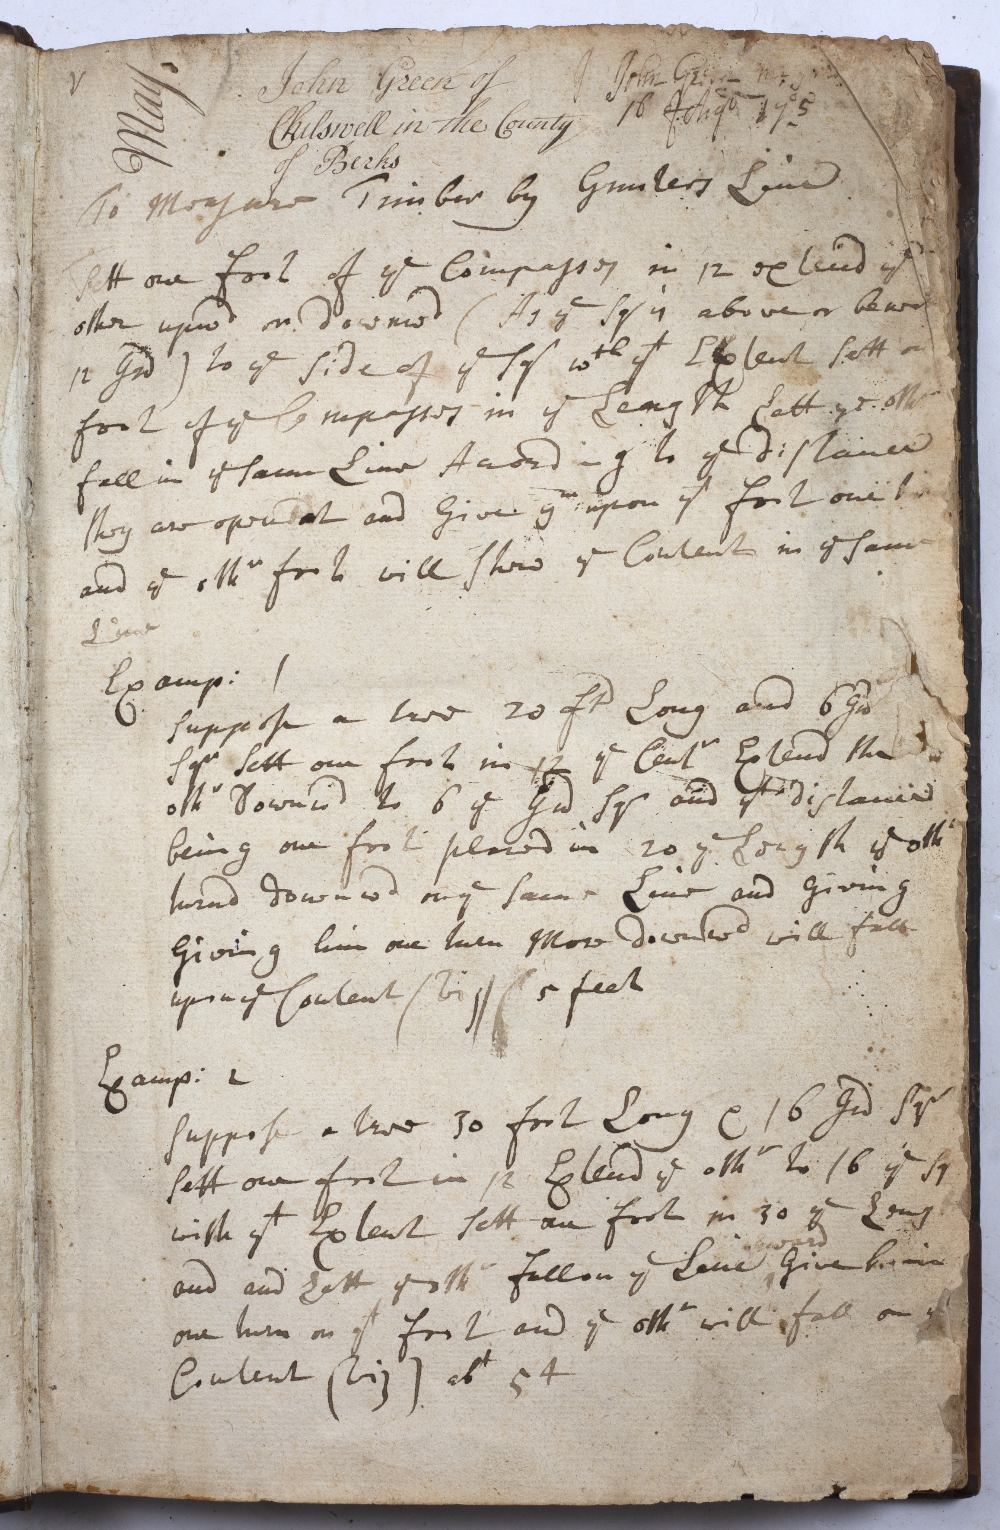 V
May
John Green of
Chilswell in the County
of Berks
John Green
16
To Measure Timber by Gunters Line
Sett one foot of ye Compasses in 12 extend ye
other upwd or downwd (As ye Sqr is above or below
12 Gd) to ye Side of ye Sqr wth yt Extent Sett on
foot of ye Compasses in ye Length Lett ye othr
fall in ye same Line Acording to ye distance
they are opened at and Give ym upon yt foot one
and ye othr foot will Shew ye Content in ye same
Line
Examp: 1
Suppose a tree 20 ft Long and 6 Gd
Sqr Sett one foot in 12 ye Centr Extend the
othr Downwd to 6 ye Gd Sqr and yt distance
being one foot placed in 20 ye Length ye othr
turnd downwd on ye same Line and Giving
Giving him one turn More downwd will fall
upon ye Content (viz) 5 feet
Examp: 2
Suppose a tree 30 foot Long & 16 Gd Sqr
Sett one foot in 12 Extend ye othr to 16 ye Sq
with yt Extent Sett one foot in 30 ye Leng
and and Lett ye othr fall on ye Line upward Give him
one turn on yt foot and ye othr will fall on ye
Content (viz) abt 54